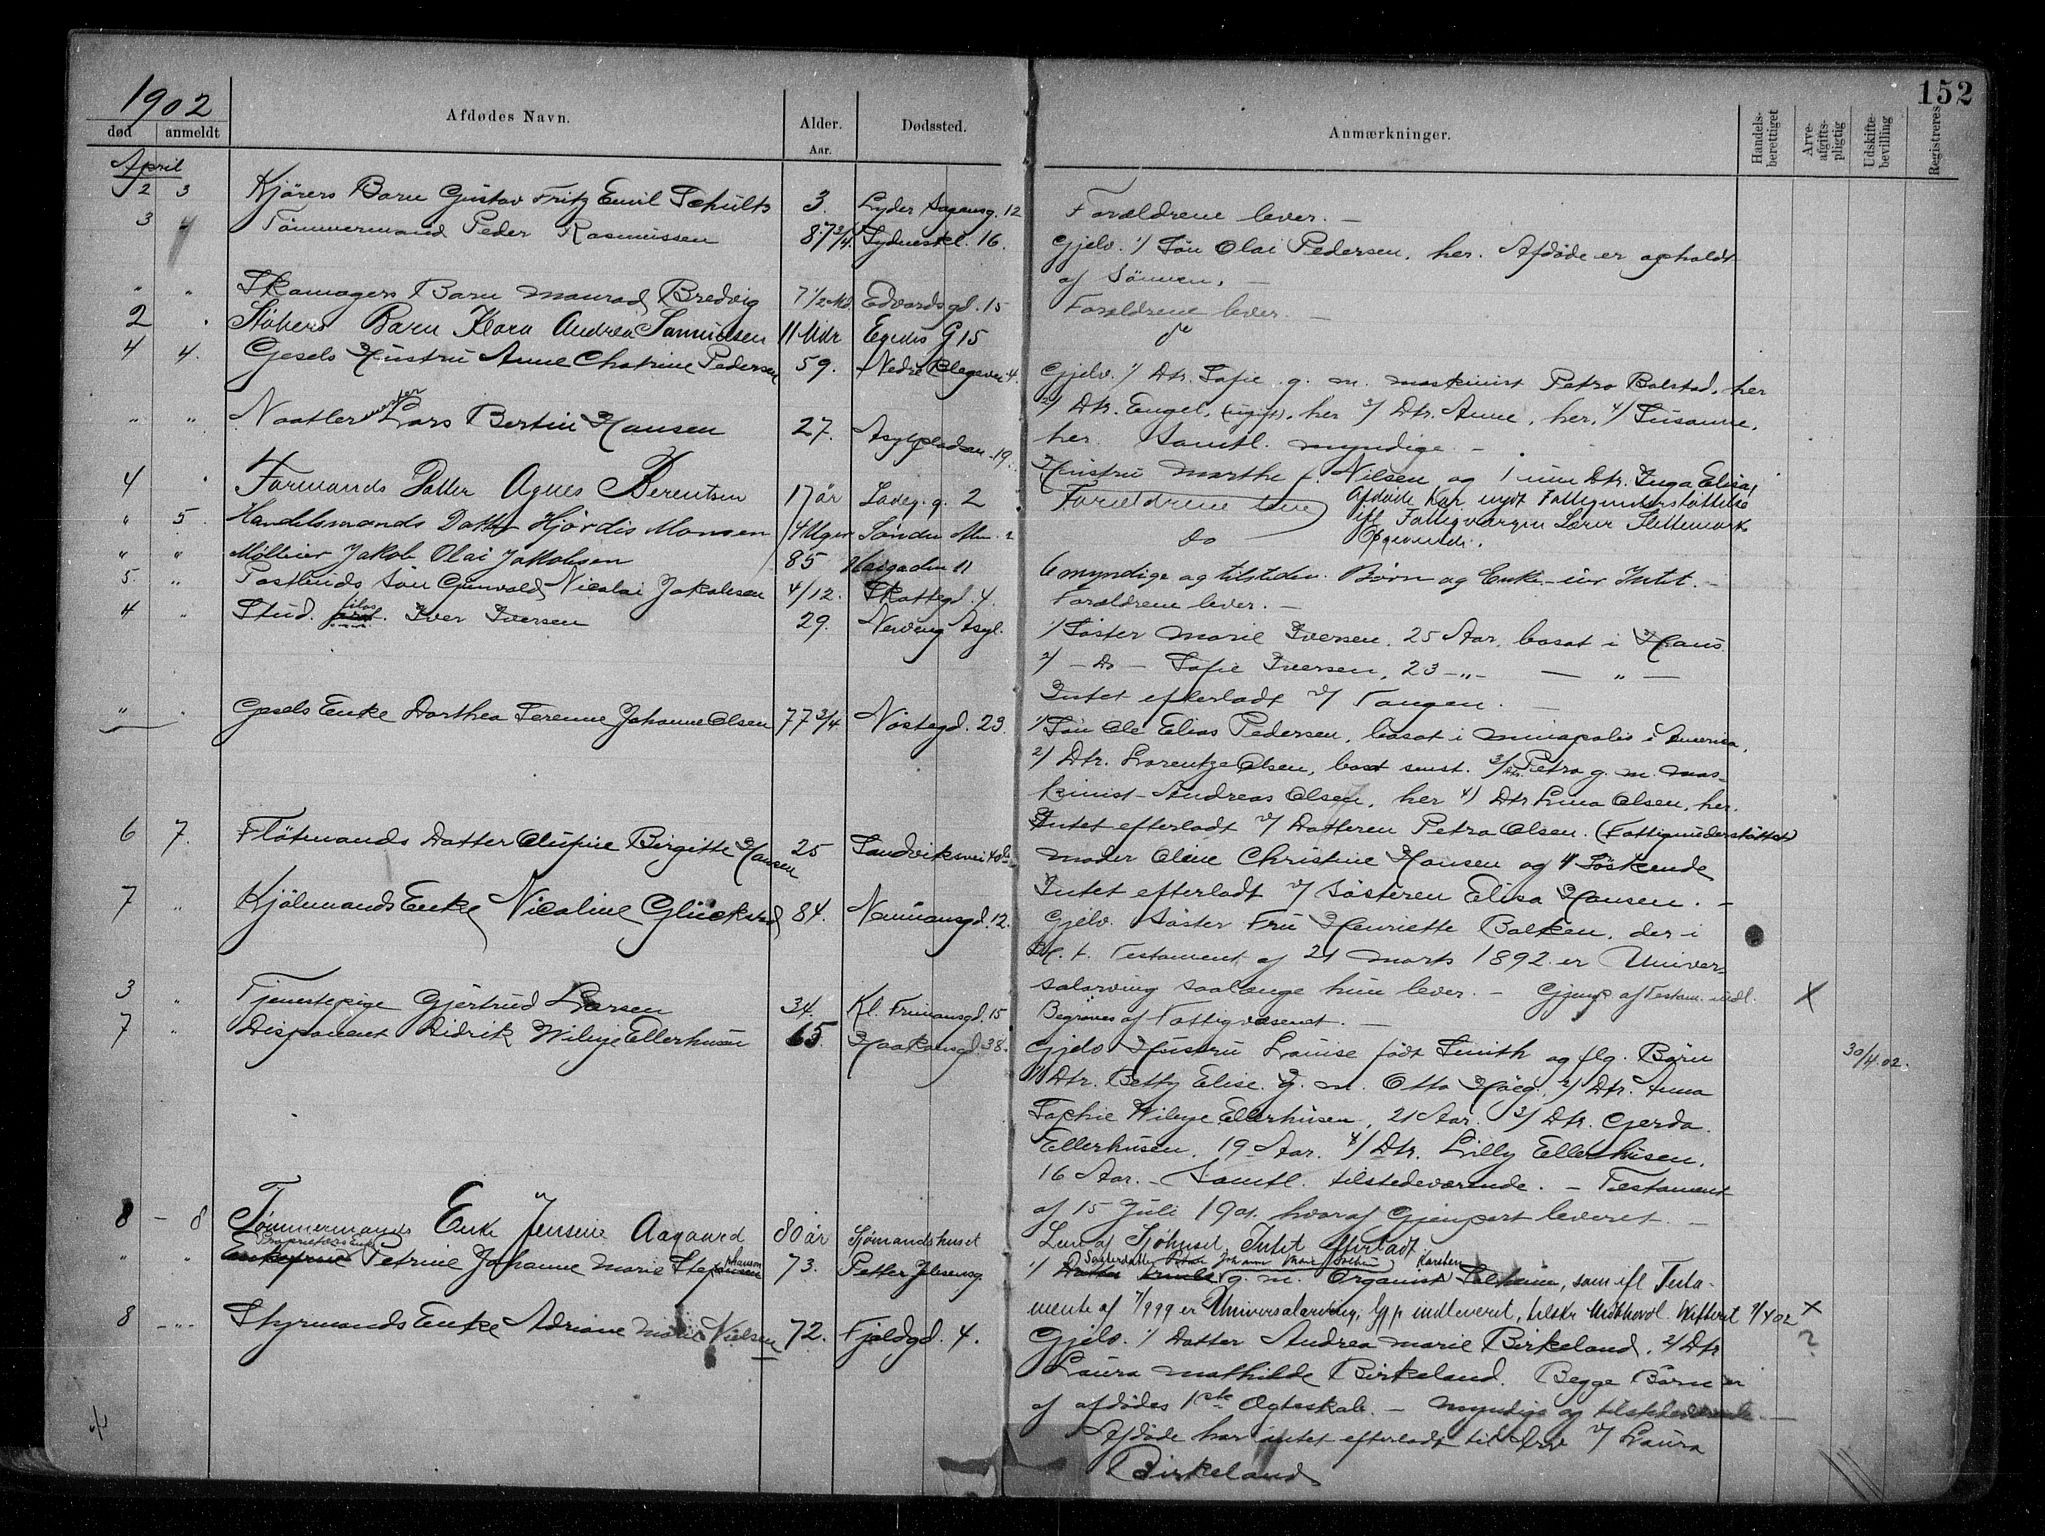 152
1902
død anmeldt Afdødes Navn. Alder. Aar. Dødssted. Anmærkninger. Handelsberettiget Arveafgiftspligtig Udskiftebevilling Registreres
April
2 3 Kjørers Barn Gustav Fritz Emil Schults 3. Lyder Sagensg. 12 Forældrene lever. —
3 4 Tømmermand Peder Rasmussen 87 3/4. Sydneskl. 16. Gjelv. 1/ Søn Olai Pedersen, her. Afdøde er opholdt
af Sønnen. —
" " Skomagers Barn Monrad Bredvig 7 1/2 Md Edvardsgd. 15 Forældrene lever. —
2 " Støbers Barn Klara Andrea Samuelsen 11 Mdr Egedis G 15 do
4 4. Gjesels Hustru Anne Chatrine Pedersen 59. Nedre Blegevei 4. Gjelv. 1/ Dtr. Sofie g. m. maskinist Petro Bolstad, her
2/ Dtr. Engel, (ugift), her 3/ Dtr. Anne, her, 4/ Susanne,
her. Samtl. myndige —
" " Naatlermester Lars Bertin Hansen 27. Asylpladsen 19. Hustru Marthe f. Nilsen og 1 um Dtr. Inga Elisa,
Afdøde har nydt Fattigunderstøttelse
ifl Fattigvæsen Lærer Slettemark
Opgivende.
4 " Formands Datter Agnes Berentsen 17 år Ladeg. g. 2 Forældrene leve
" 5. Handelsmands Datter Hjørdis Monsen 4 Uger Søndre Alm. Do
" " Møllter Jakob Olai Jakobsen 85 Haugaden 11 6 myndige og tilsteden. Børn og Enke — Intet. —
5. " Postbuds Søn Gunvald Nicolai Jakobsen 4/12. Skottegd. 4. Forældrene lever. —
4 " Stud. filos. Iver Iversen 29. Nevengs Asyl. 1/ Søster Marie Iversen, 25 Aar, bosat i Hans
2/ — Do — Sofie Iversen, 23 — " — — " —
Intet efterladt v/ Tangen. —
" " Gjesels Enke Dorthea Serenne Johanne Olsen 77 3/4 Nøstegd. 23. 1/ Søn Ole Elias Pedersen, bosat i Minapolis i America,
2/ Dtr. Lorentze Olsen, bosat smst. 3/ Dtr. Petra g. m. mas-
kinist Andreas Olsen, her 4/ Dtr Lina Olsen, her.
Intet efterladt v/ Datteren Petra Olsen. (Fattigunderstøttet)
6 7. Fløtmands Datter Olufine Birgitte Hansen 25 Sandviksvei 40 Moder Oline Christine Hansen og 4 Søskende
Intet efterladt v/ Søsteren Elisa Hansen. —
7 " Kjølmands Enke Nicoline Glückstad 84. Neumansgd. 12. Gjelv. Søster Fru Henriette Balken, der i
H. t. Testament af 21 Marts 1892 er Univer-
salarving saalænge hun lever. — Gjenp. af Testam. indl. X
3 " Tjenestepige Gjertrud Larsen 34. Kl. Frimansgd. 15 Begraves af Fattigvæsenet. —
7 " Disponent Didrik Wiluje Ellerhusen 65. Haakonsgd. 38. Gjelv. Hustru Louise født Smith og flg. Børn 30/4.02.
1/ Dtr. Betty Elise g. m. Otto Høeg, 2/ Dtr. Anna
Sophie Wiluje Ellerhusen, 21 Aar. 3/ Dtr. Gjerda
Ellerhusen, 19 Aar. 4/ Dtr. Lilly Ellerhusen,
16 Aar. — Samtl. tilstedeværende. — Testament
af 15 Juli 1901. hvoraf Gjenpart leveret —
8 — 8 Tømmermands Enke Jensine Aagaard 80 år Sjømandshuset Lem af Sjøhuset. Intet efterladt
" " Proprietærs Enke Petrine Johanne Marie Stephanson 73. Petter Jebsensg. 1/ Søsterdatter g. m. Organist Karsten Solheim, som ifl Testa-
mente af 7/9 99 er Universalarving, Gjp indleveret, 7/4 02 X
8 — " — Styrmands Enke Adriane Marie Nielsen 72. Fjeldgd. 4. Gjelv. 1/ Datter Andrea Marie Birkeland, 2/ Dtr ?
Laura Mathilde Birkeland. Begge Børn er
af afdødes 1ste Ægteskab. — Myndige og tilstedeværende —
Afdøde har intet efterladt til Arv v/ Laura
Birkeland